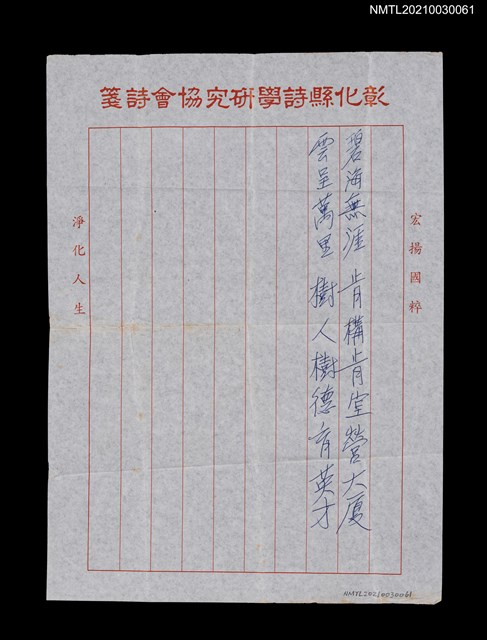 NMTL20210030061
彰化縣詩學研究協會詩箋
宏揚國粹
碧海無涯 肯構肯堂營大厦
雲呈萬里 樹人樹德育英才
淨化人生
NMTL20210030061